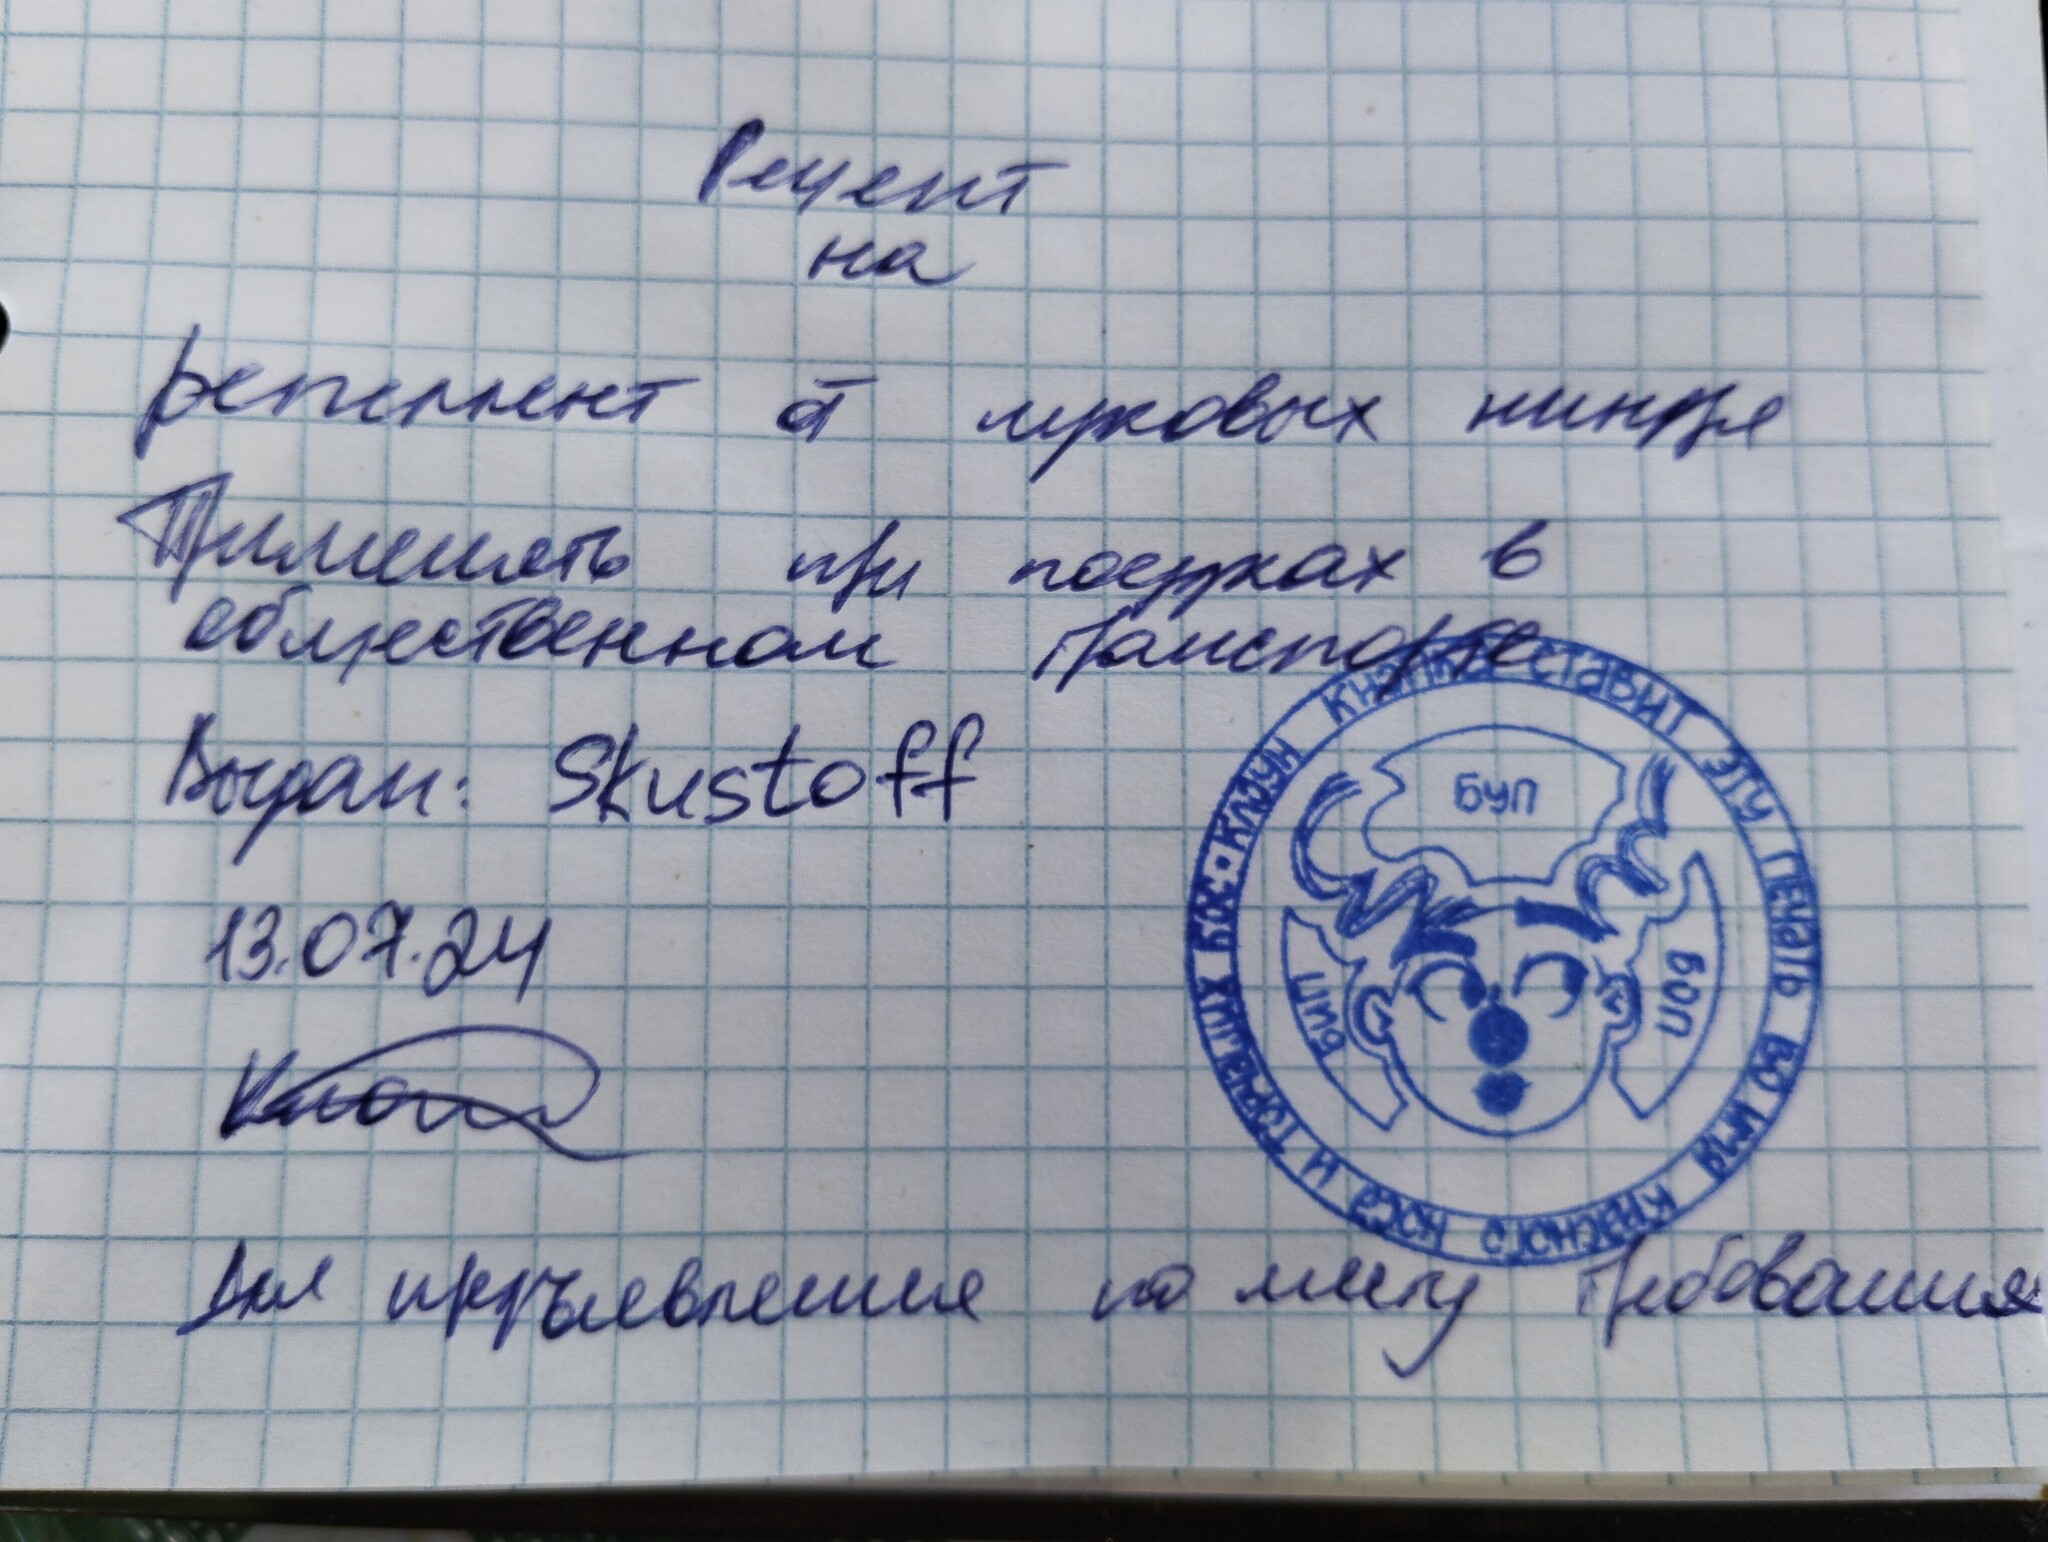 Рецепт
на
репеллент от луковых ниндзя
Применять при поездках в
общественном транспорте
Выдан: Skustoff
13.07.24
Для предъявления по месту требования
Клоун Кнэпке ставит эту печать во имя красного носа и торчащих бох
БУП
БИП
БОП